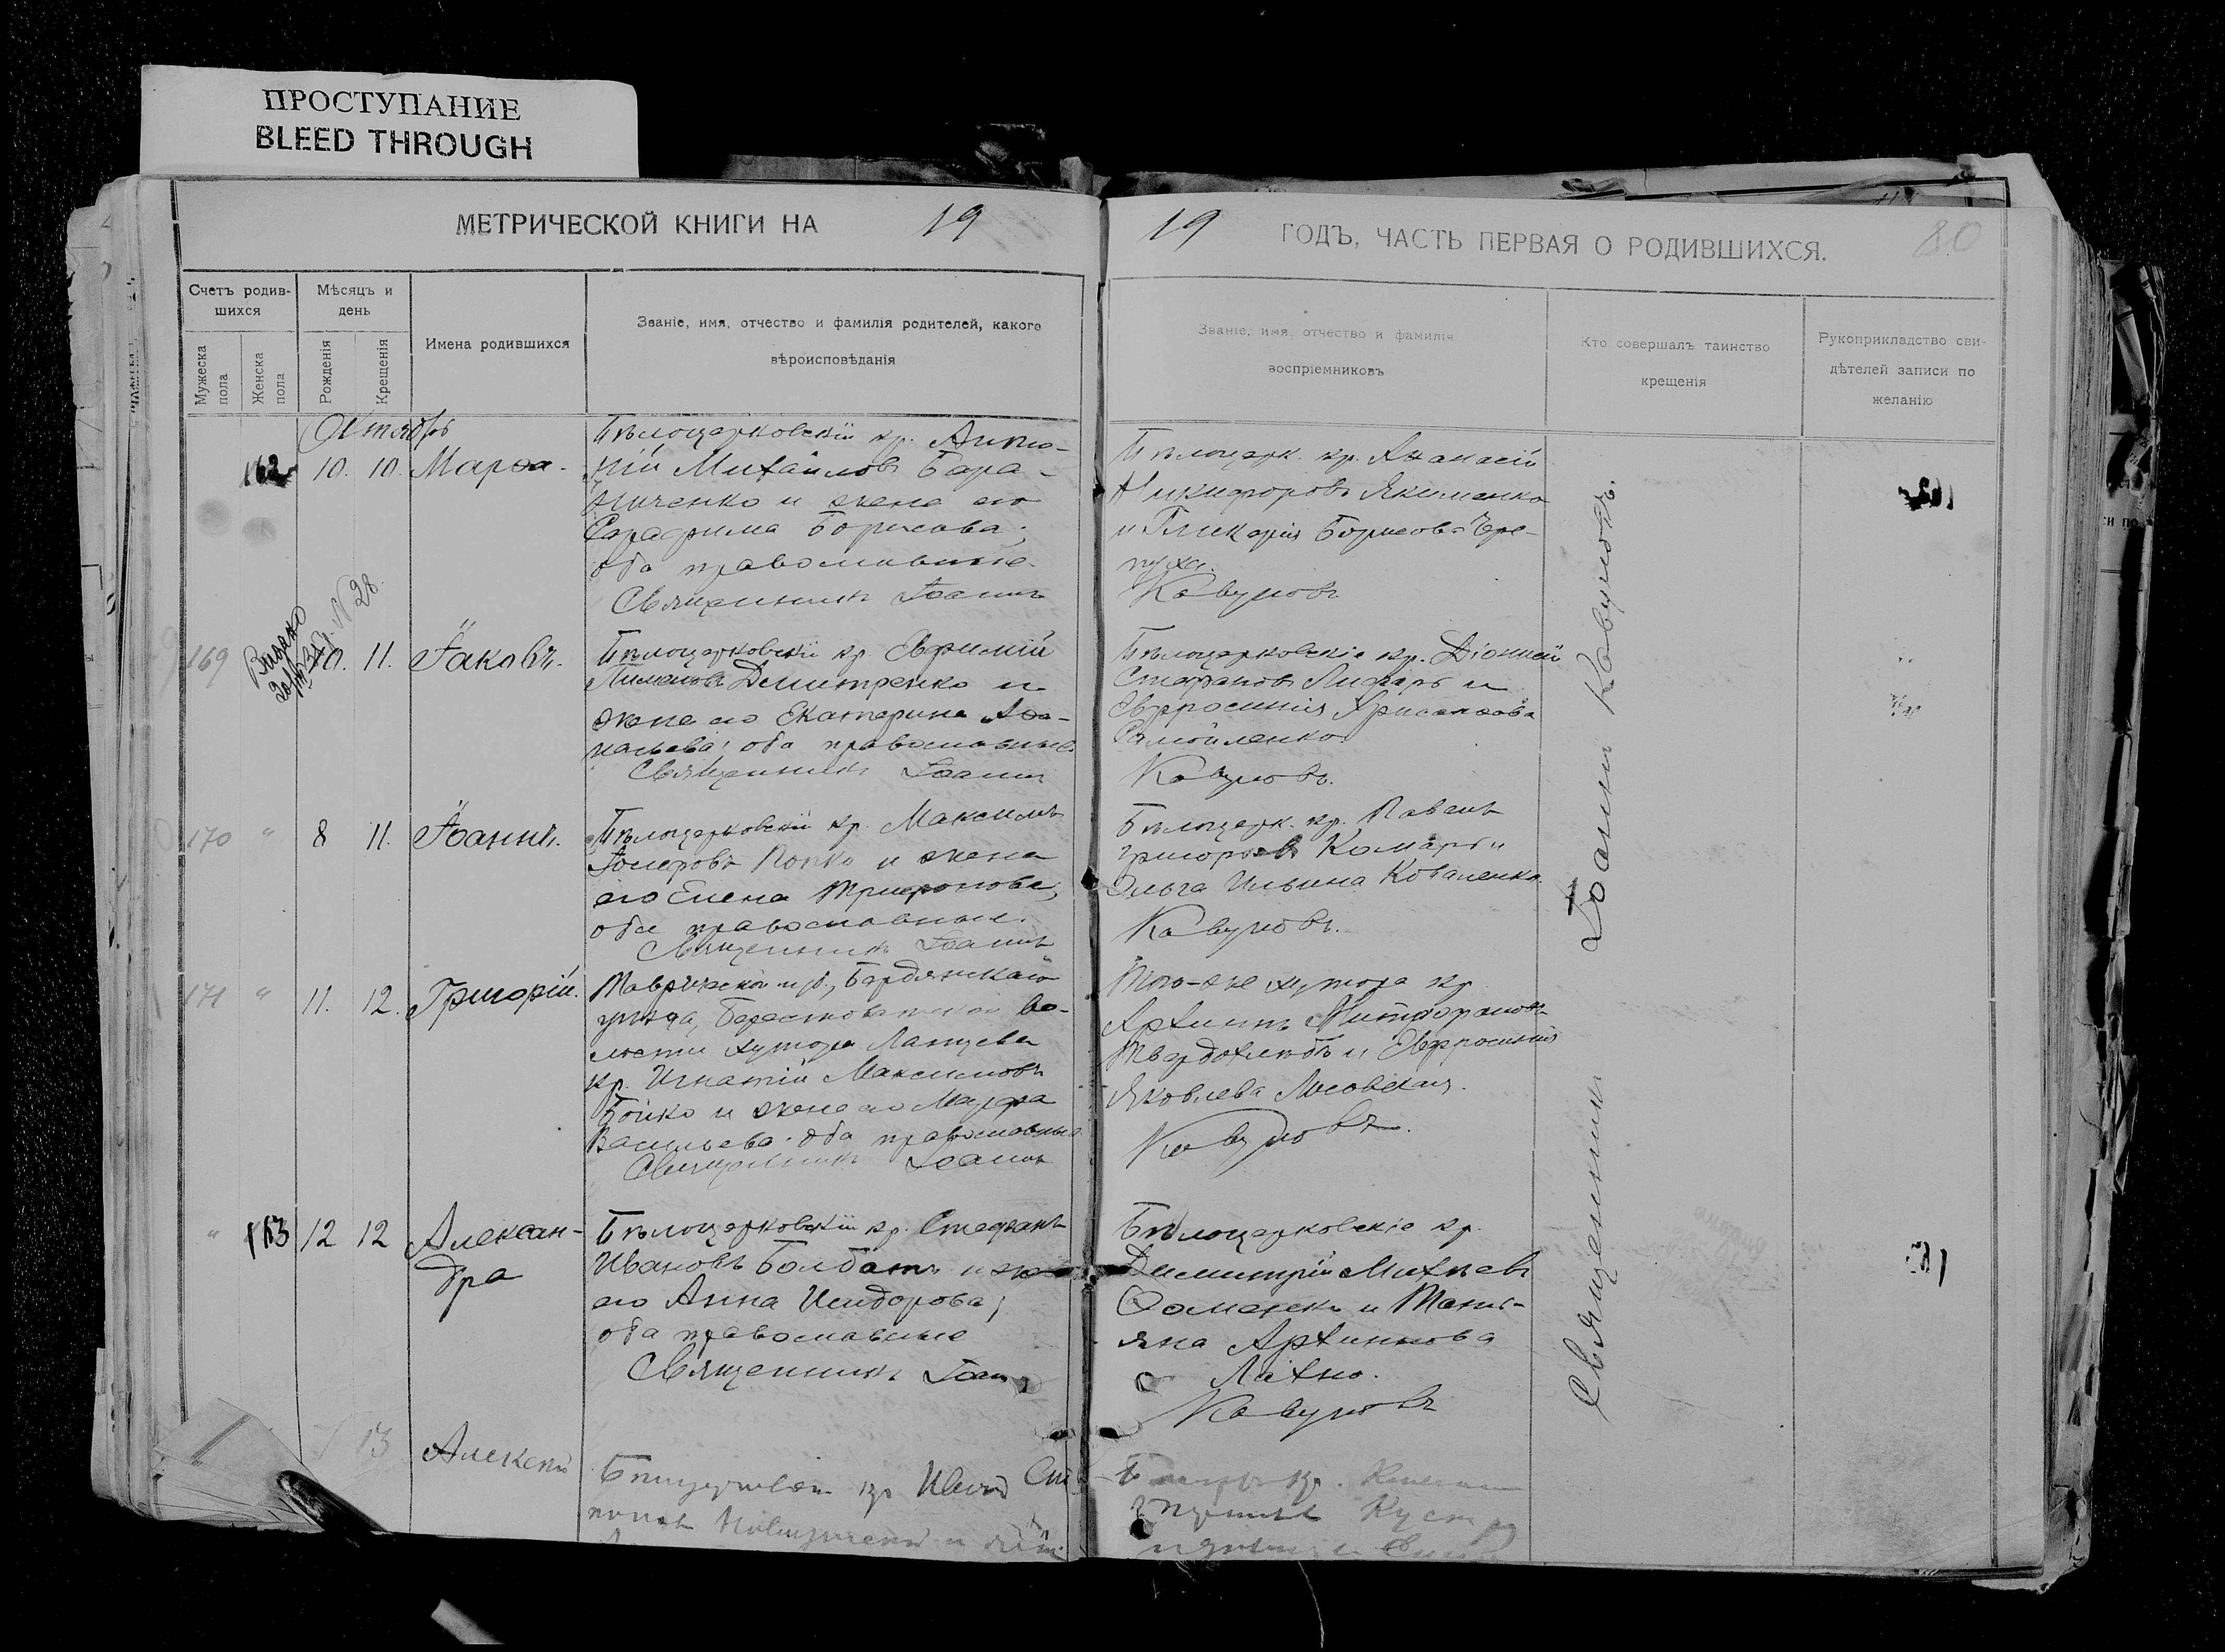 ПРОСТУПАНИЕ
BLEED THROUGH
МЕТРИЧЕСКОЙ КНИГИ НА 19
19 ГОДЪ, ЧАСТЬ ПЕРВАЯ О РОДИВШИХСЯ. 80
Счетъ родив-
шихся
Мужеска
пола
Женска
пола
Мѣсяцъ и
день
Рожденія
Крещенія
Имена родившихся
Званіе, имя, отчество и фамилія родителей, какого
вѣроисповѣданія
Званіе, имя, отчество и фамилія
воспріемниковъ
Кто совершалъ таинство
крещенія
Рукоприкладство сви-
дѣтелей записи по
желанію
Октябрь
162 10. 10. Марѳа.
Бѣлоцерковскій кр. Анто-
ній Михайловъ Бара-
ниченко и жена его
Серафима Борисова;
оба православные.
Священникъ Іоаннъ
Бѣлоцерк. кр. Аѳанасій
Никифоровъ Якименко
и Гликерія Борисова Чере-
пуха.
Кавуновъ
Выдано
№ 28
169 10. 11. Іаковъ.
Бѣлоцерковскій кр. Евфимій
Пименовъ Дмитренко и
жена его Екатерина Аѳа-
насьева; оба православные.
Священникъ Іоаннъ
Бѣлоцерковскіе кр. Діонисій
Стефановъ Лифарь и
Евфросинія Хрисанѳова
Самойленко.
Кавуновъ.
170 " 8 11. Іоаннъ.
Бѣлоцерковскій кр. Максимъ
Попко и жена
его Елена Трифонова;
оба православные.
Священникъ Іоаннъ
Бѣлоцерк. кр. Павелъ
Григорьевъ Комаръ и
Ольга Ильина Коваленко
Кавуновъ.
171 " 11. 12. Григорій.
Таврической губ., Бердянскаго
уѣзда, Берестоватской во-
лости хутора
кр. Игнатій Максимовъ
Бойко и жена его Марѳа
Васильева. оба православные
Священникъ Іоаннъ
Того-же хутора кр.
Архипъ Митрофановъ
Твердохлѣбъ и Евфросинія
Яковлева Лисовская.
Кавуновъ.
" 163 12 12 Александ-
ра
Бѣлоцерковскій кр. Стефанъ
Ивановъ Болбатъ и ж
его Анна Исидорова;
оба православные
Священникъ Іоан
Бѣлоцерковскіе кр.
Димитрій Михѣевъ
и Тать-
яна Архиппова
Лахно.
Кавуновъ
13 Алексѣй
кр Иванъ
кр.
Священникъ Іоаннъ Кавуновъ.